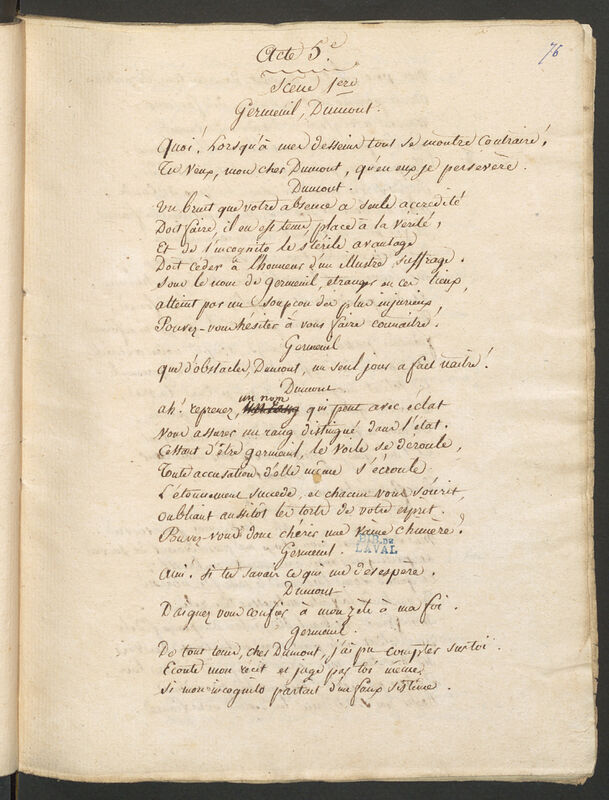 76
Acte 5e.
Scène 1ere
Germeuil, Dumont.
Quoi! Lorsqu'à mes desseins tout se montre contraire,
Tu veux, mon cher Dumont, qu'en eux je persevère.
Dumont.
Un bruit que votre absence a seule accredité
Doit faire, il en est tems, place à la vérité,
Et de l'incognito le stérile avantage
Doit ceder à l'honneur d'un illustre suffrage.
Sous le nom de Germeuil, etranger en ces lieux,
atteint par un soupçon des plus injurieux,
Pouvez-vous hésiter à vous faire connaitre!
Germeuil
que d'obstacles, Dumont, un seul jour a fait naître!
Dumont.
un nom
ah! reprenez qui peut avec éclat
Vous assurer un rang distingué dans l'état.
Cessant d'être germeuil, le voile se déroule,
Toute accusation d'elle même s'écroule.
L'étonnement succède, et chacun vous sourit,
oubliant aussitôt les torts de votre esprit.
Pouvez-vous donc chérir une vaine chimère?
BIB. DE
LAVAL
Germeuil.
Ami! si tu savais ce qui me désespère.
Dumont.
Daignez vous confier à mon zèle à ma foi.
Germeuil.
De tout tems, cher Dumont, j'ai pu compter sur toi.
Ecoute mon récit et juge par toi même
Si mon incognito partait d'un faux sistême.